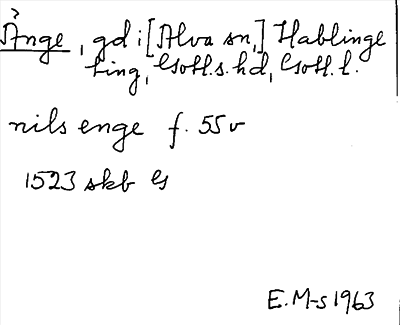 Änge, gd i [Alva sn,] Hablinge
ting, Gotl. s. hd, Gotl. l.
nils enge f. 55 v
1523 skb G
E. M-s 1963